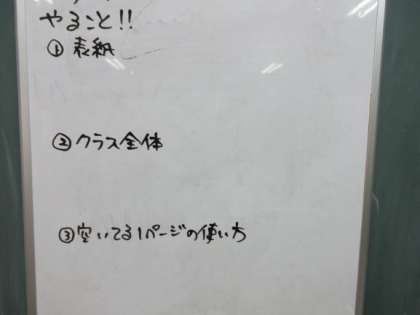 やること!!
①表紙
②クラス全体
③空いてる1ページの使い方